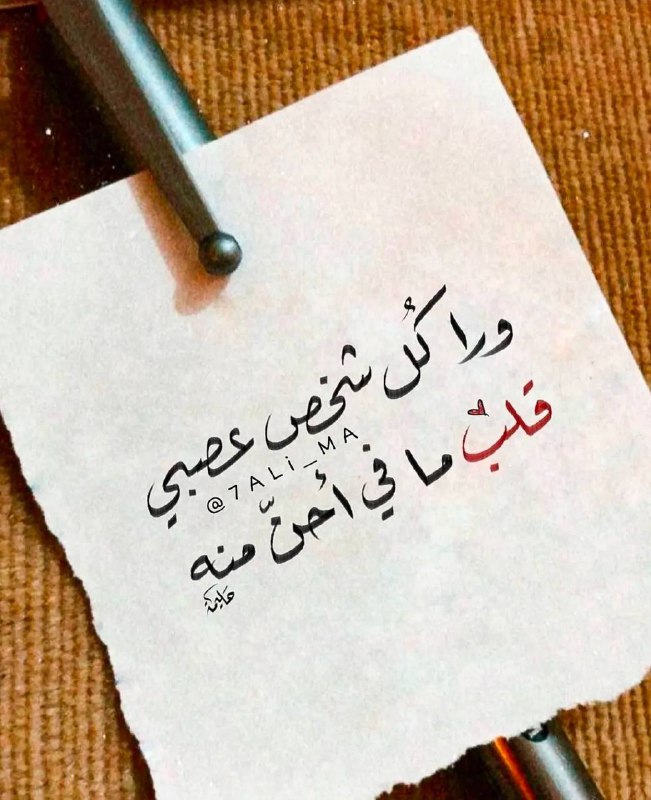 ورا كُل شخص عصبي
@7ALi_MA
قلب ما في أحنّ منه
حليمة